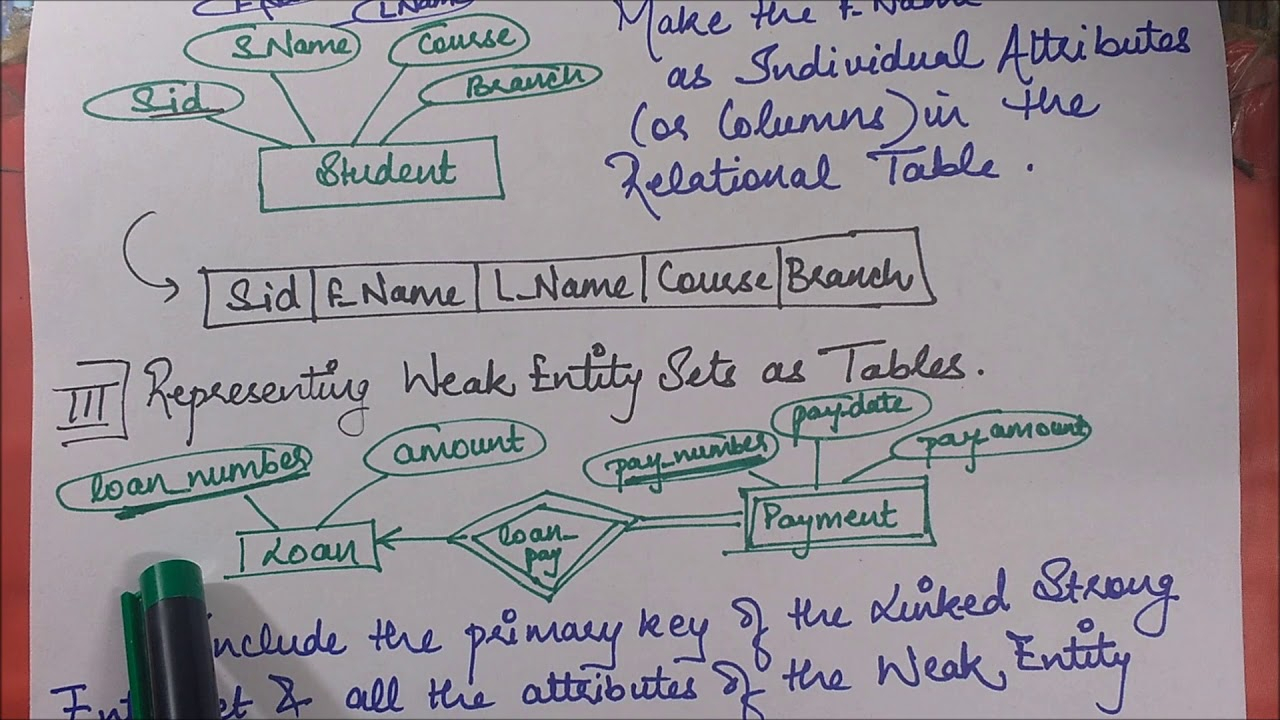 L_Name
Make the F_Name
S_Name
Course
as Individual Attributes
Sid
Branch
(or Columns) in the
Student
Relational Table.
Sid F_Name L_Name Course Branch
III Representing Weak Entity Sets as Tables.
loan_number
amount
pay_number
pay_date
pay_amount
Loan
loan_
pay
Payment
include the primary key of the Linked Strong
& all the attributes of the Weak Entity